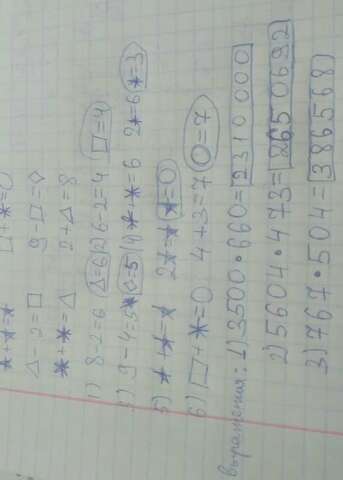 *+*=* □+*=O
△-2=□ 9-□=◇
*+*=△ 2+△=8
1) 8-2=6 △=6 2) 6-2=4 □=4
3) 9-4=5 ◇=5 4) *+*=6 2*=6 *=3
5) *+*=* 2*=* *=0
6) □+*=O 4+3=7 O=7
выражения: 1) 3500•660=2310000
2) 5604•473=2650692
3) 767•504=386568